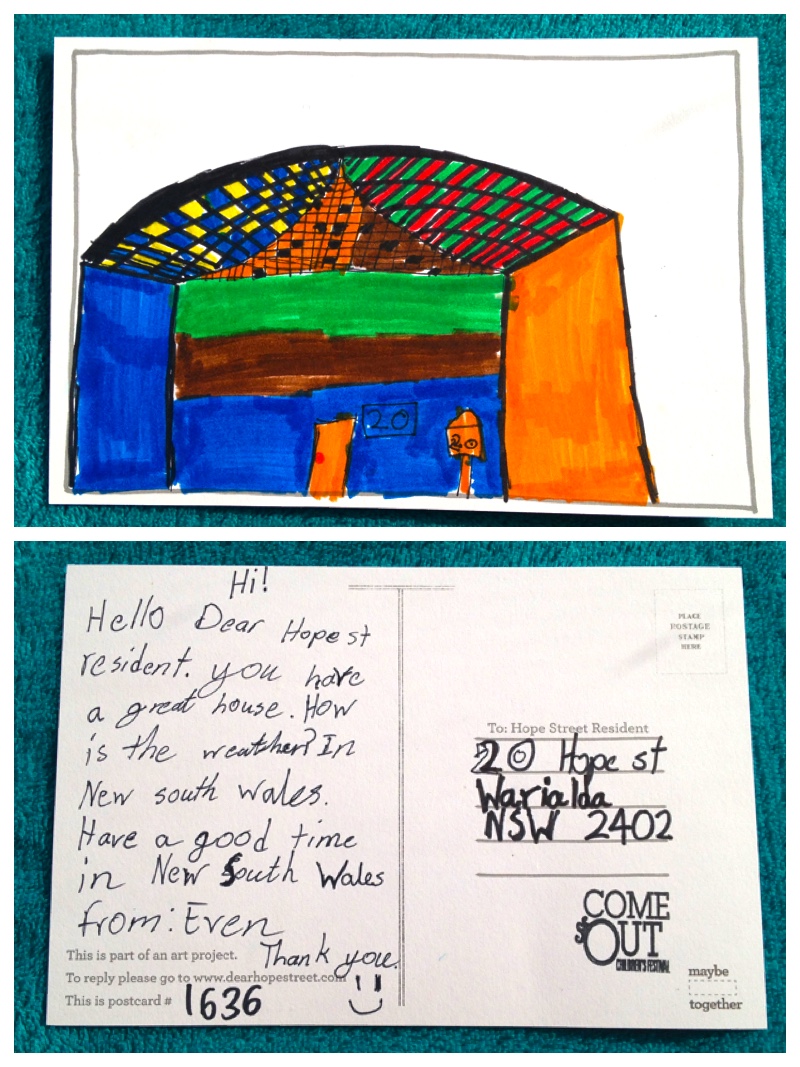 20
20
Hi!
Hello Dear Hope st
resident. you have
a great house. How
is the weather? In
New south wales.
Have a good time
in New South Wales
from: Even
Thank you.
This is part of an art project.
To reply please go to www.dearhopestreet.com
This is postcard # 1636
PLACE
POSTAGE
STAMP
HERE
To: Hope Street Resident
20 Hope st
Warialda
NSW 2402
COME
OUT
CHILDREN'S FESTIVAL
maybe
together